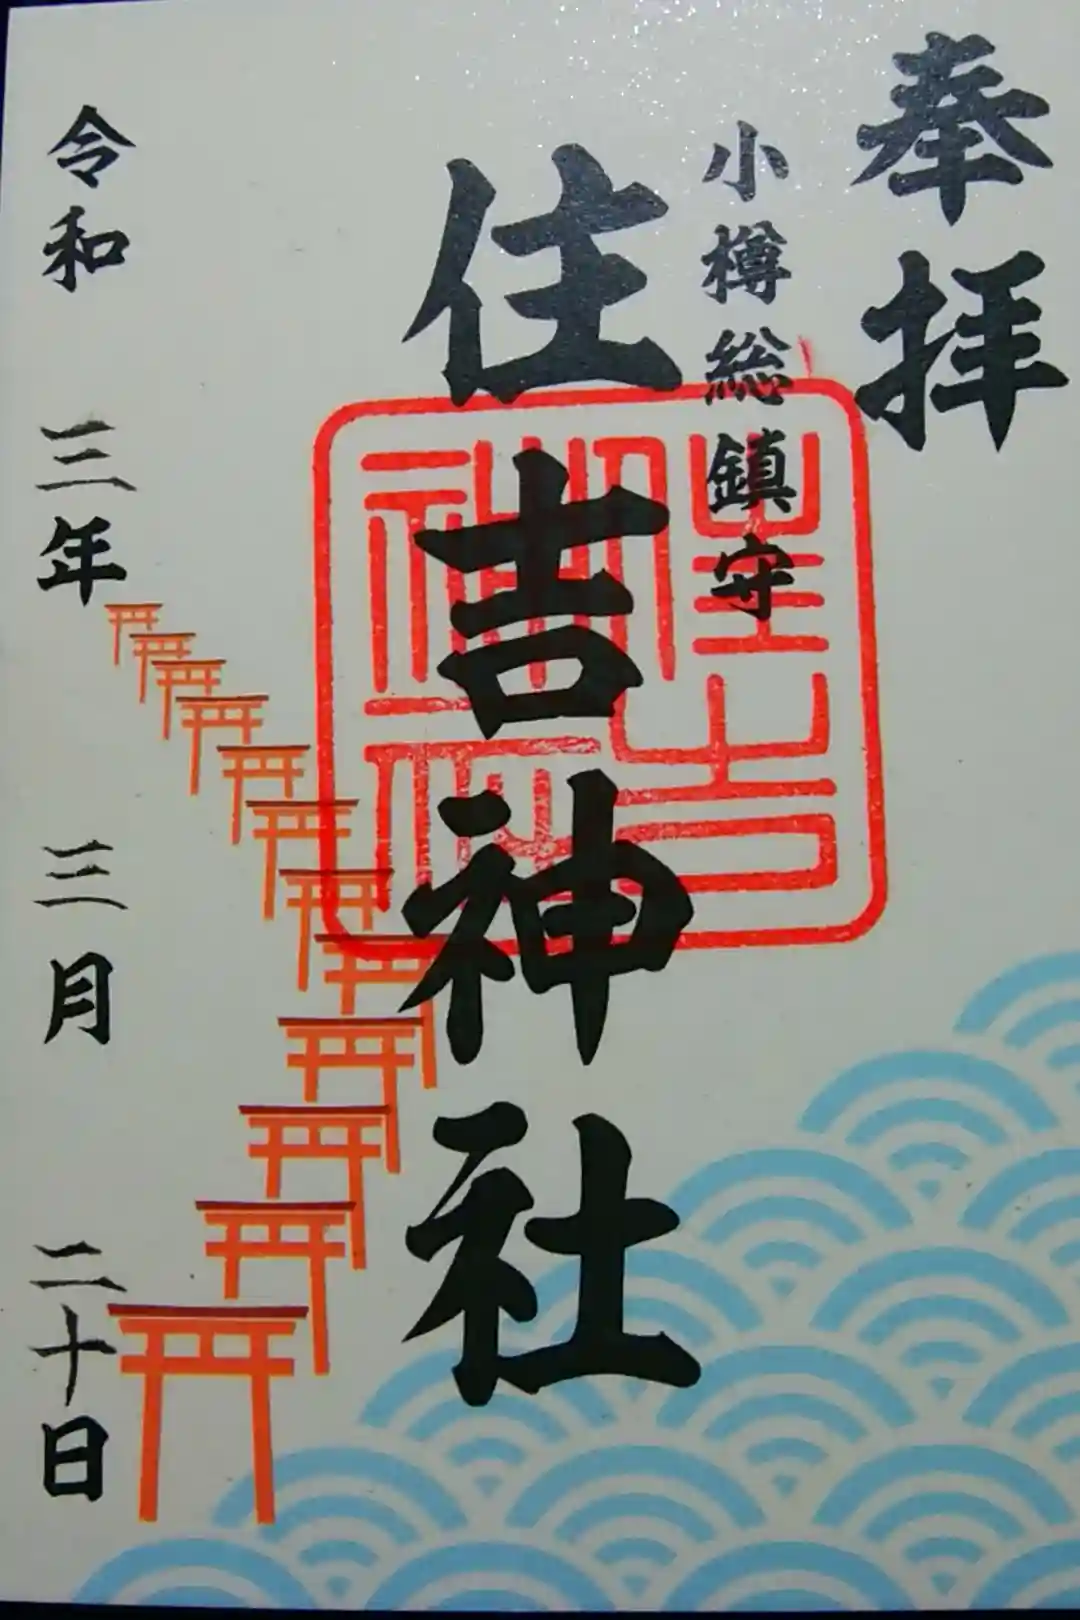 奉拝
小樽総鎮守
住吉神社
住吉
神社印
令和三年三月二十日